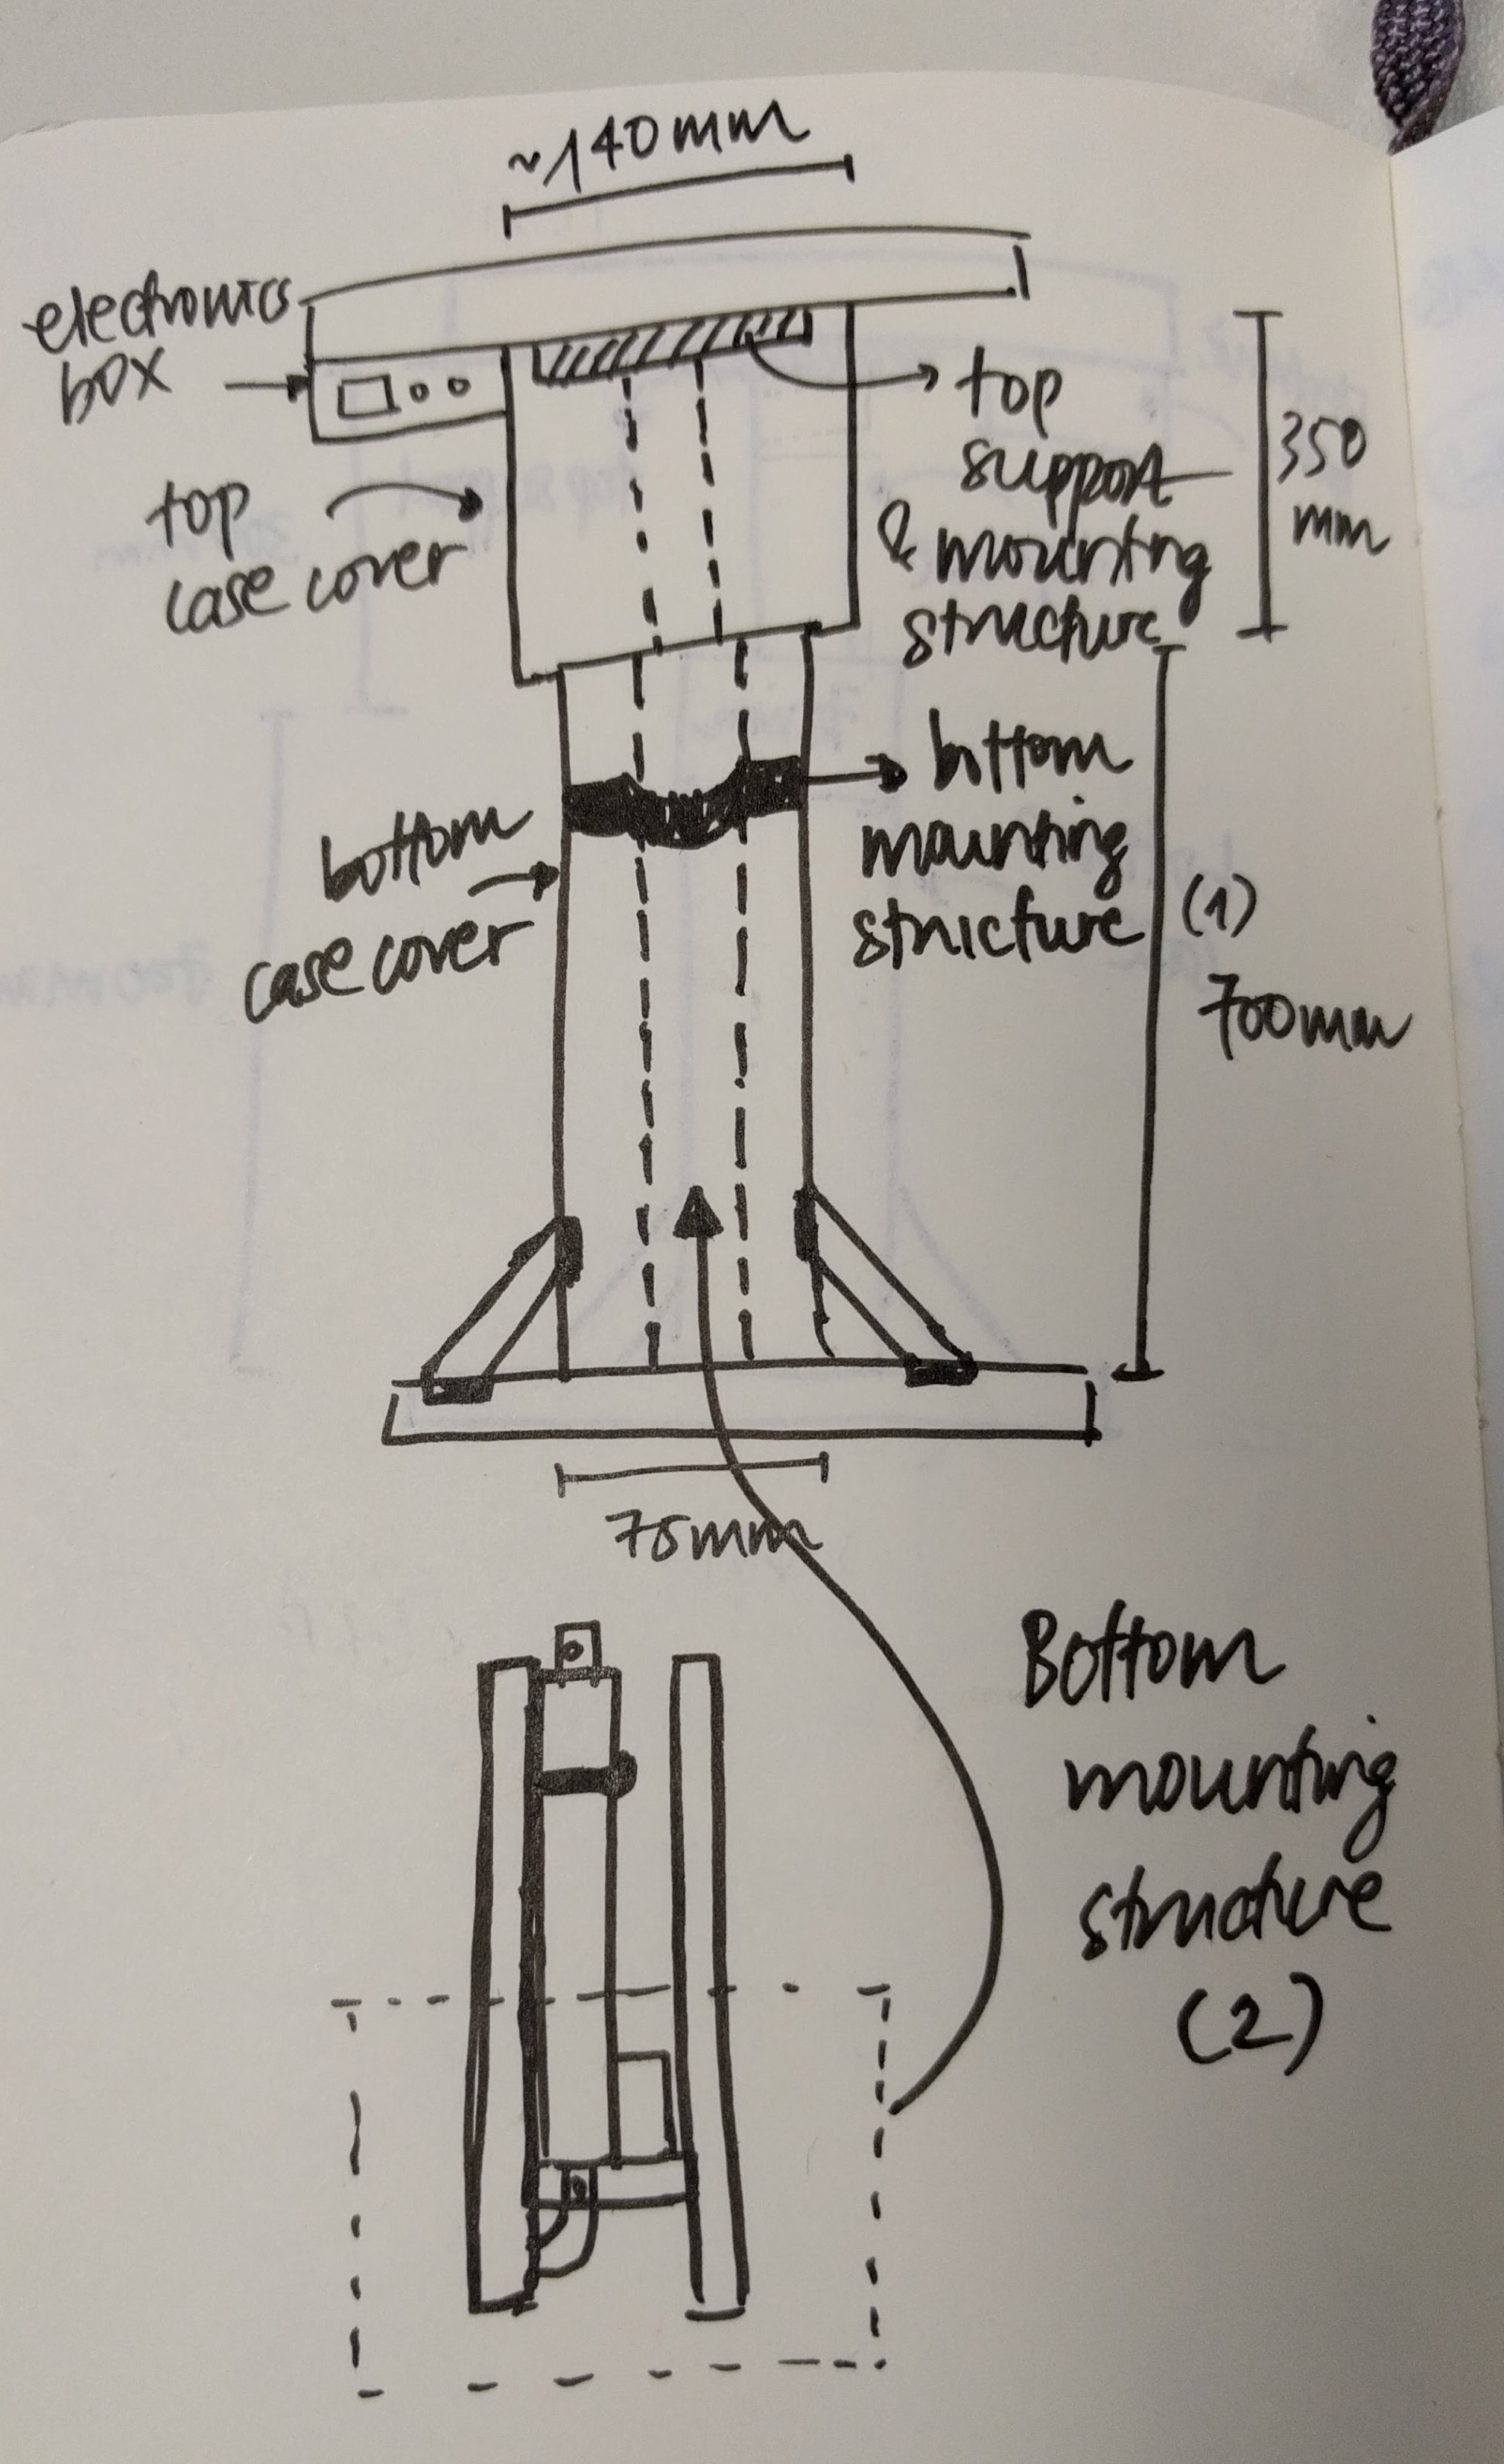 ~140mm
electronics
box
top
case cover
top
support
& mounting
structure
350
mm
bottom
mounting
structure
(1)
700mm
bottom
case cover
75mm
Bottom
mounting
structure
(2)